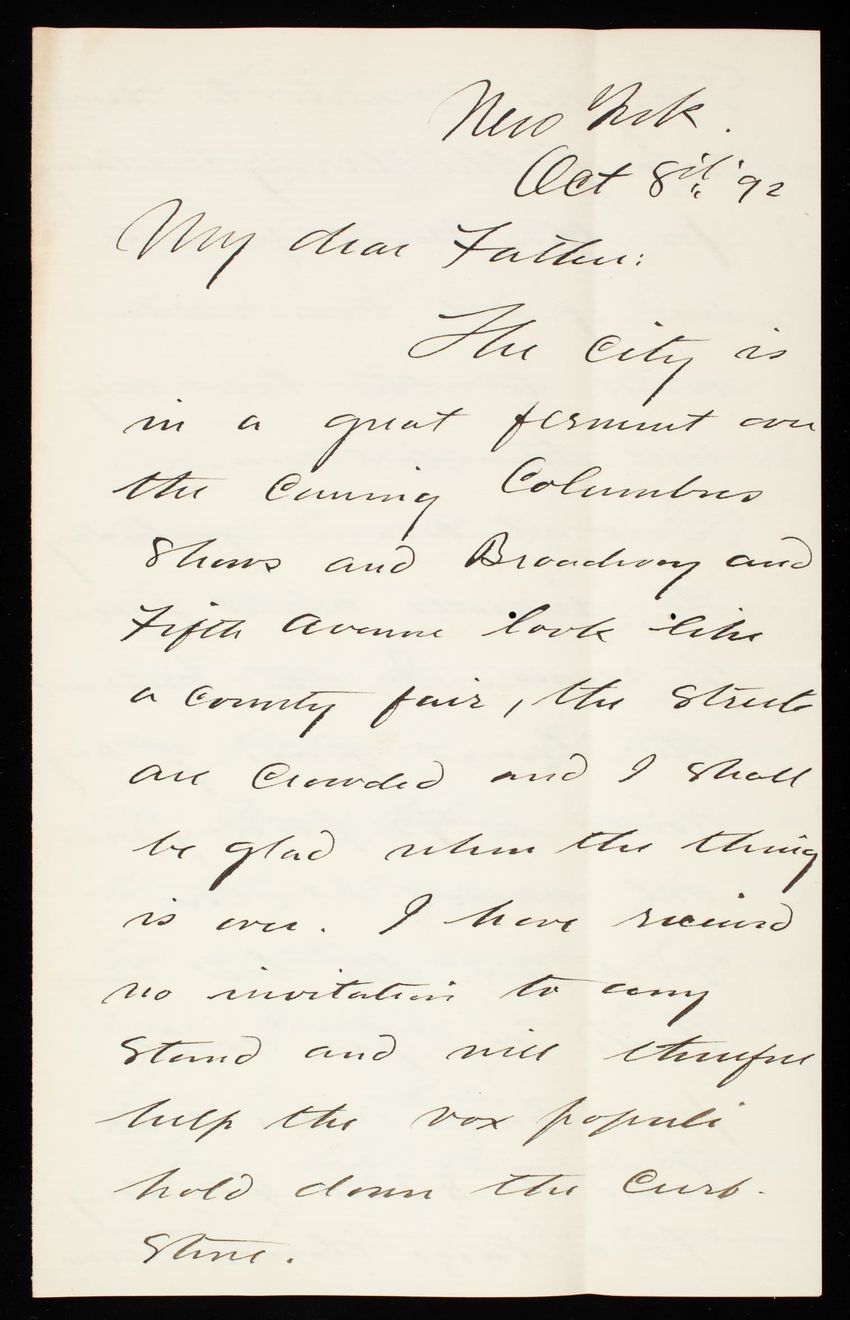 New York.
Oct 8th '92
My dear Father:
The City is
in a great ferment over
the Coming Columbus
Shows and Broadway and
Fifth Avenue look like
a county fair, the Streets
are Crowded and I Shall
be glad when the thing
is over. I have received
no invitation to any
Stand and will therefore
help the vox populi
hold down the Curb-
Stone.